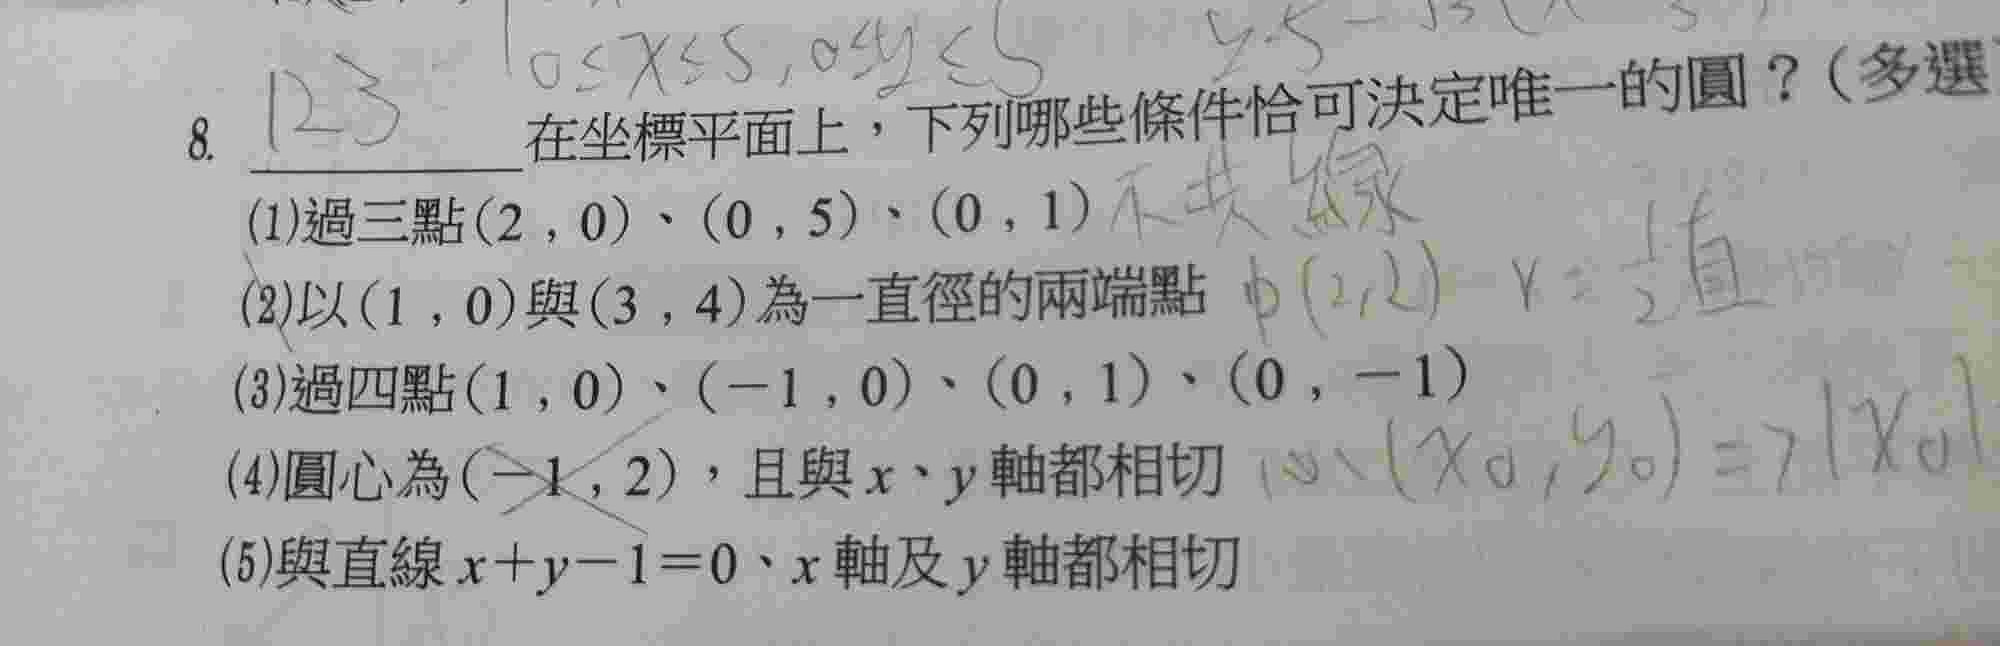 0≤x≤5,0≤y≤5
8. 123 在坐標平面上,下列哪些條件恰可決定唯一的圓?(多選
(1)過三點(2,0)、(0,5)、(0,1) 不共線
(2)以(1,0)與(3,4)為一直徑的兩端點 中(2,2) r=1/2直
(3)過四點(1,0)、(-1,0)、(0,1)、(0,-1)
(4)圓心為(-1,2),且與x、y軸都相切 (x₀,y₀)=>|x₀|
(5)與直線x+y-1=0、x軸及y軸都相切